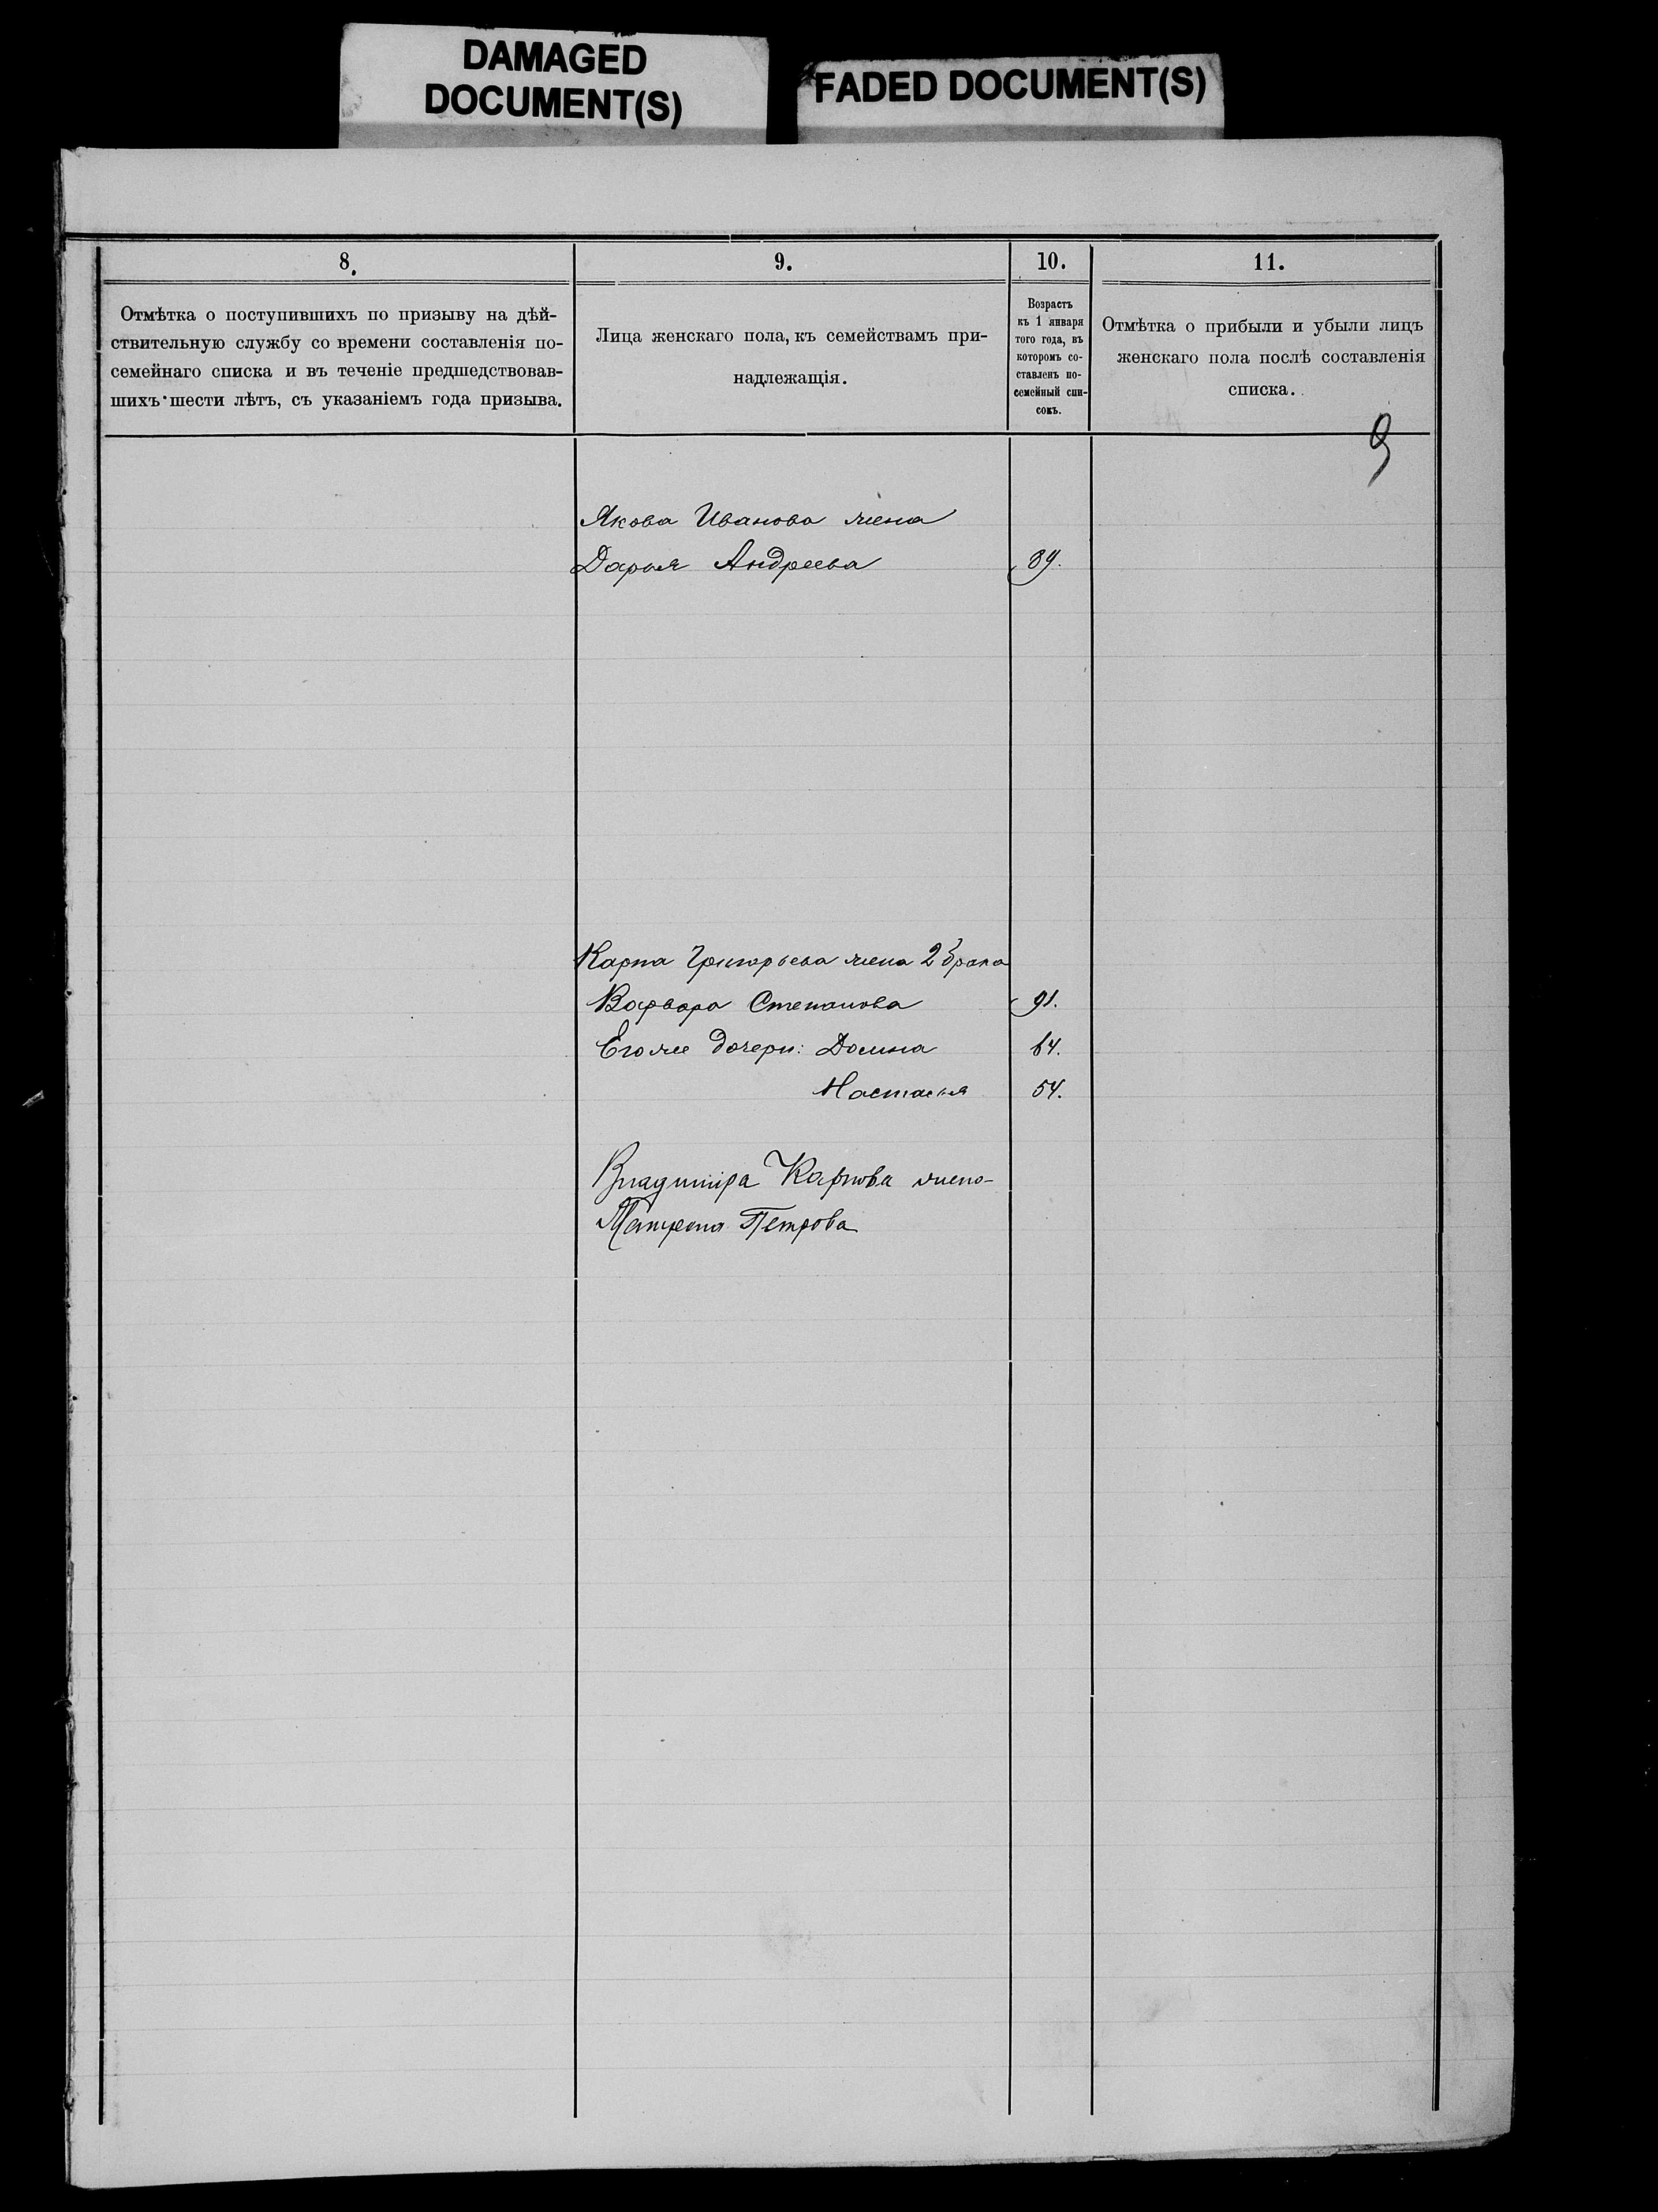 DAMAGED
DOCUMENT(S)
FADED DOCUMENT(S)
8.
9.
10.
11.
Отмѣтка о поступившихъ по призыву на дѣй-
ствительную службу со времени составленія по-
семейнаго списка и въ теченіе предшедствовав-
шихъ шести лѣтъ, съ указаніемъ года призыва.
Лица женскаго пола, къ семействамъ при-
надлежащія.
Возрастъ
къ 1 января
того года, въ
которомъ со-
ставленъ по-
семейный спи-
сокъ.
Отмѣтка о прибыли и убыли лицъ
женскаго пола послѣ составленія
списка.
9
Якова Иванова жена
Дарья Андреева 89.
Карпа Григорьева жена 2 брака
Варвара Степанова 91.
Его же дочери: Домна 64.
Настасья 54.
Владимира Карпова жена
Матрена Петрова